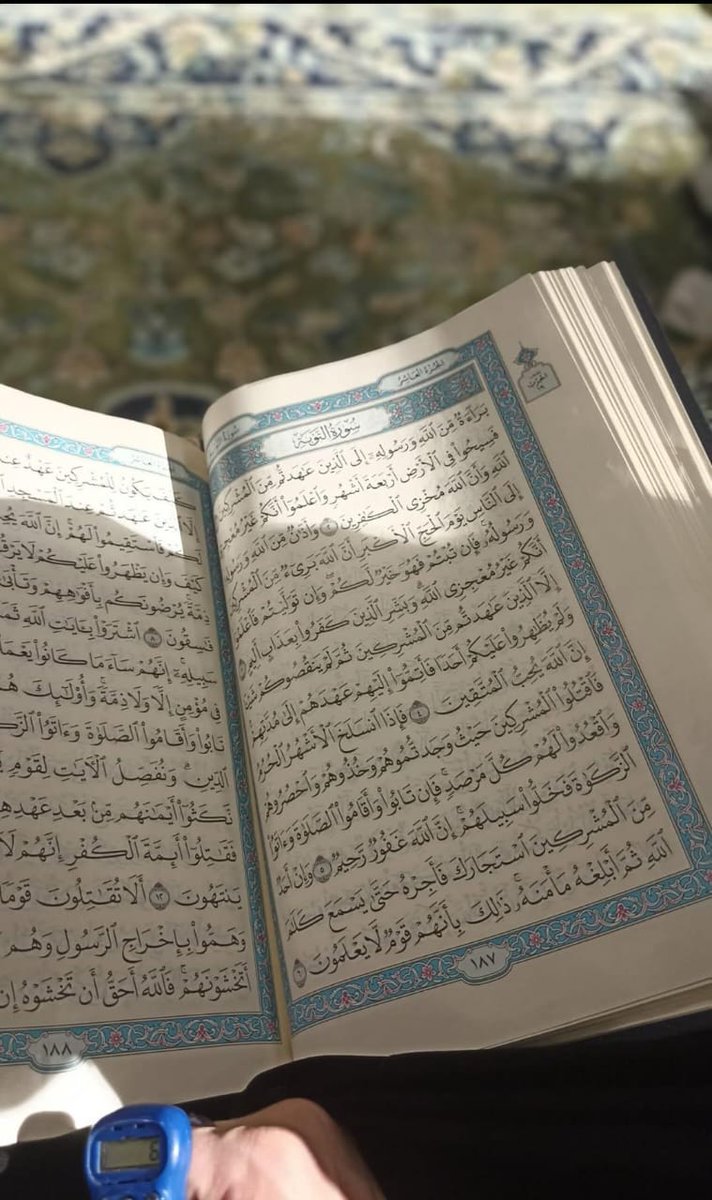 الجزء العاشر
سُورَةُ التَّوْبَةِ
بَرَآءَةٌ مِّنَ ٱللَّهِ وَرَسُولِهِۦٓ إِلَى ٱلَّذِينَ عَٰهَدتُّم مِّنَ ٱلْمُشْرِكِينَ
فَسِيحُوا۟ فِى ٱلْأَرْضِ أَرْبَعَةَ أَشْهُرٍ وَٱعْلَمُوٓا۟ أَنَّكُمْ غَيْرُ
ٱللَّهِ وَأَنَّ ٱللَّهَ مُخْزِى ٱلْكَٰفِرِينَ ٢ وَأَذَٰنٌ مِّنَ ٱللَّهِ وَرَسُولِهِۦٓ
إِلَى ٱلنَّاسِ يَوْمَ ٱلْحَجِّ ٱلْأَكْبَرِ أَنَّ ٱللَّهَ بَرِىٓءٌ مِّنَ ٱلْمُشْرِكِينَ
وَرَسُولُهُۥ فَإِن تُبْتُمْ فَهُوَ خَيْرٌ لَّكُمْ وَإِن تَوَلَّيْتُمْ فَٱعْلَمُوٓا۟
أَنَّكُمْ غَيْرُ مُعْجِزِى ٱللَّهِ وَبَشِّرِ ٱلَّذِينَ كَفَرُوا۟ بِعَذَابٍ أَلِيمٍ
إِلَّا ٱلَّذِينَ عَٰهَدتُّم مِّنَ ٱلْمُشْرِكِينَ ثُمَّ لَمْ يَنقُصُوكُمْ شَيْـًٔا
وَلَمْ يُظَٰهِرُوا۟ عَلَيْكُمْ أَحَدًا فَأَتِمُّوٓا۟ إِلَيْهِمْ عَهْدَهُمْ إِلَىٰ مُدَّتِهِمْ
إِنَّ ٱللَّهَ يُحِبُّ ٱلْمُتَّقِينَ ٤ فَإِذَا ٱنسَلَخَ ٱلْأَشْهُرُ ٱلْحُرُمُ
فَٱقْتُلُوا۟ ٱلْمُشْرِكِينَ حَيْثُ وَجَدتُّمُوهُمْ وَخُذُوهُمْ وَٱحْصُرُوهُمْ
وَٱقْعُدُوا۟ لَهُمْ كُلَّ مَرْصَدٍ فَإِن تَابُوا۟ وَأَقَامُوا۟ ٱلصَّلَوٰةَ وَءَاتَوُا۟
ٱلزَّكَوٰةَ فَخَلُّوا۟ سَبِيلَهُمْ إِنَّ ٱللَّهَ غَفُورٌ رَّحِيمٌ ٥ وَإِنْ أَحَدٌ
مِّنَ ٱلْمُشْرِكِينَ ٱسْتَجَارَكَ فَأَجِرْهُ حَتَّىٰ يَسْمَعَ كَلَٰمَ
ٱللَّهِ ثُمَّ أَبْلِغْهُ مَأْمَنَهُۥ ذَٰلِكَ بِأَنَّهُمْ قَوْمٌ لَّا يَعْلَمُونَ ٦
١٨٧
كَيْفَ يَكُونُ لِلْمُشْرِكِينَ عَهْدٌ
إِلَّا ٱلَّذِينَ عَٰهَدتُّمْ عِندَ ٱلْمَسْجِدِ
لَكُمْ فَٱسْتَقِيمُوا۟ لَهُمْ إِنَّ ٱللَّهَ
كَيْفَ وَإِن يَظْهَرُوا۟ عَلَيْكُمْ لَا
ذِمَّةً يُرْضُونَكُم بِأَفْوَٰهِهِمْ وَتَأْبَىٰ
فَٰسِقُونَ ٨ ٱشْتَرَوْا۟ بِـَٔايَٰتِ ٱللَّهِ
سَبِيلِهِۦٓ إِنَّهُمْ سَآءَ مَا كَانُوا۟
فِى مُؤْمِنٍ إِلًّا وَلَا ذِمَّةً وَأُو۟لَٰٓئِكَ
تَابُوا۟ وَأَقَامُوا۟ ٱلصَّلَوٰةَ وَءَاتَوُا۟
ٱلدِّينِ وَنُفَصِّلُ ٱلْـَٔايَٰتِ لِقَوْمٍ
نَّكَثُوٓا۟ أَيْمَٰنَهُم مِّنۢ بَعْدِ عَهْدِهِمْ
فَقَٰتِلُوٓا۟ أَئِمَّةَ ٱلْكُفْرِ إِنَّهُمْ لَآ
يَنتَهُونَ ١٢ أَلَا تُقَٰتِلُونَ قَوْمًا
وَهَمُّوا۟ بِإِخْرَاجِ ٱلرَّسُولِ وَهُم
أَتَخْشَوْنَهُمْ فَٱللَّهُ أَحَقُّ أَن تَخْشَوْهُ إِن
١٨٨